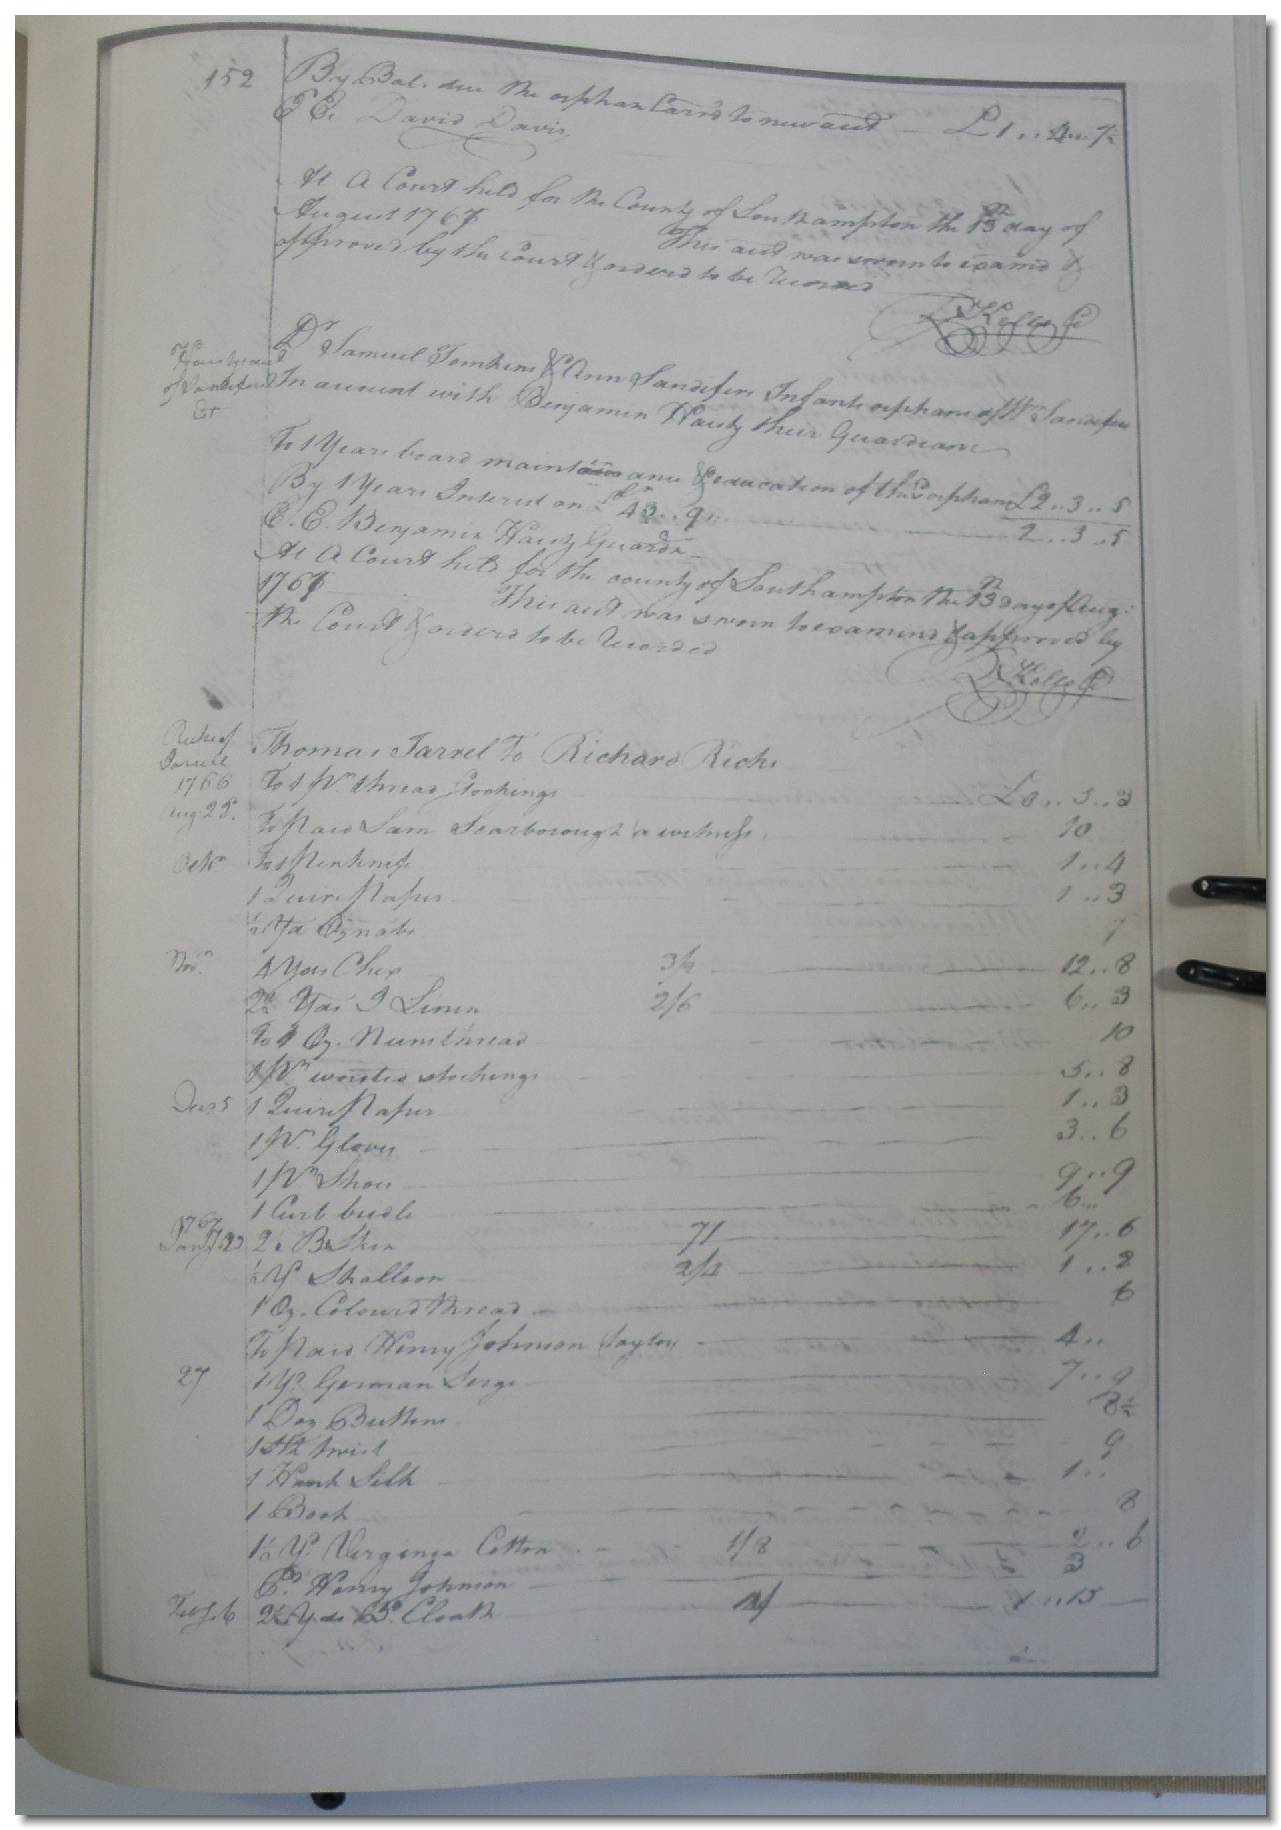 152
By Bal. due the orphan Carrd to new acct £1..4..7½
E E. David Davis
At A Court held for the County of Southampton the 13th day of
August 1767
This acct was sworn to examd &
approved by the Court & orderd to be Recorded
R Kello C
of Sandefurd
Dr Samuel Tomkins & Ann Sandefurs Infants orphans of Wm Sandefur
In account with Benjamin Harty their Guardian
To 1 Years board maint ance & education of this orphan £2..3..5
By 1 Years Interest on £43..9 2..3..5
E. E. Benjamin Harty Guardn
At A Court held for the county of Southampton the 13th day of Aug:
1767 This acct was sworn to examined & approved by
the Court & orderd to be Recorded
R Kello C
Ricks of
Thomas Jarrel To Richard Ricks
1766 To 1 Pr. thread Stockings £0..5..3
Aug: 25. To Paid Sam Scarborough a witness 10
Octr. To 1 Penknife 1..4
1 Quire Paper 1..3
½ Yd Oznabs 7
Novr. 4 Yds Chex 3/2 12..8
2½ Yds I Linen 2/6 6..3
To 1 Oz. Nunsthread 10
1 Pr worsted stockings 5..8
Decr 5 1 Quire Paper 1..3
1 Pr. Gloves 3..6
1 Pr Shoes 9..9
1 Curb bridle 6..
1767
Jany 23 2½ B Skin 7/ 17..6
½ Y. Shalloon 2/4 1..2
1 Oz. Colourd thread 6
To Paid Henry Johnson taylor 4..
27 1 Yd German Serge 7..9
1 Doz Buttons 8½
1 Stk twist 9
1 Hank Silk 1..
1 Book 8
1½ Y. Virginia Cotton 1/8 2..6
Pd. Henry Johnson 3
Feby. 6 2½ Yds Bd. Cloath 14/ 1..15